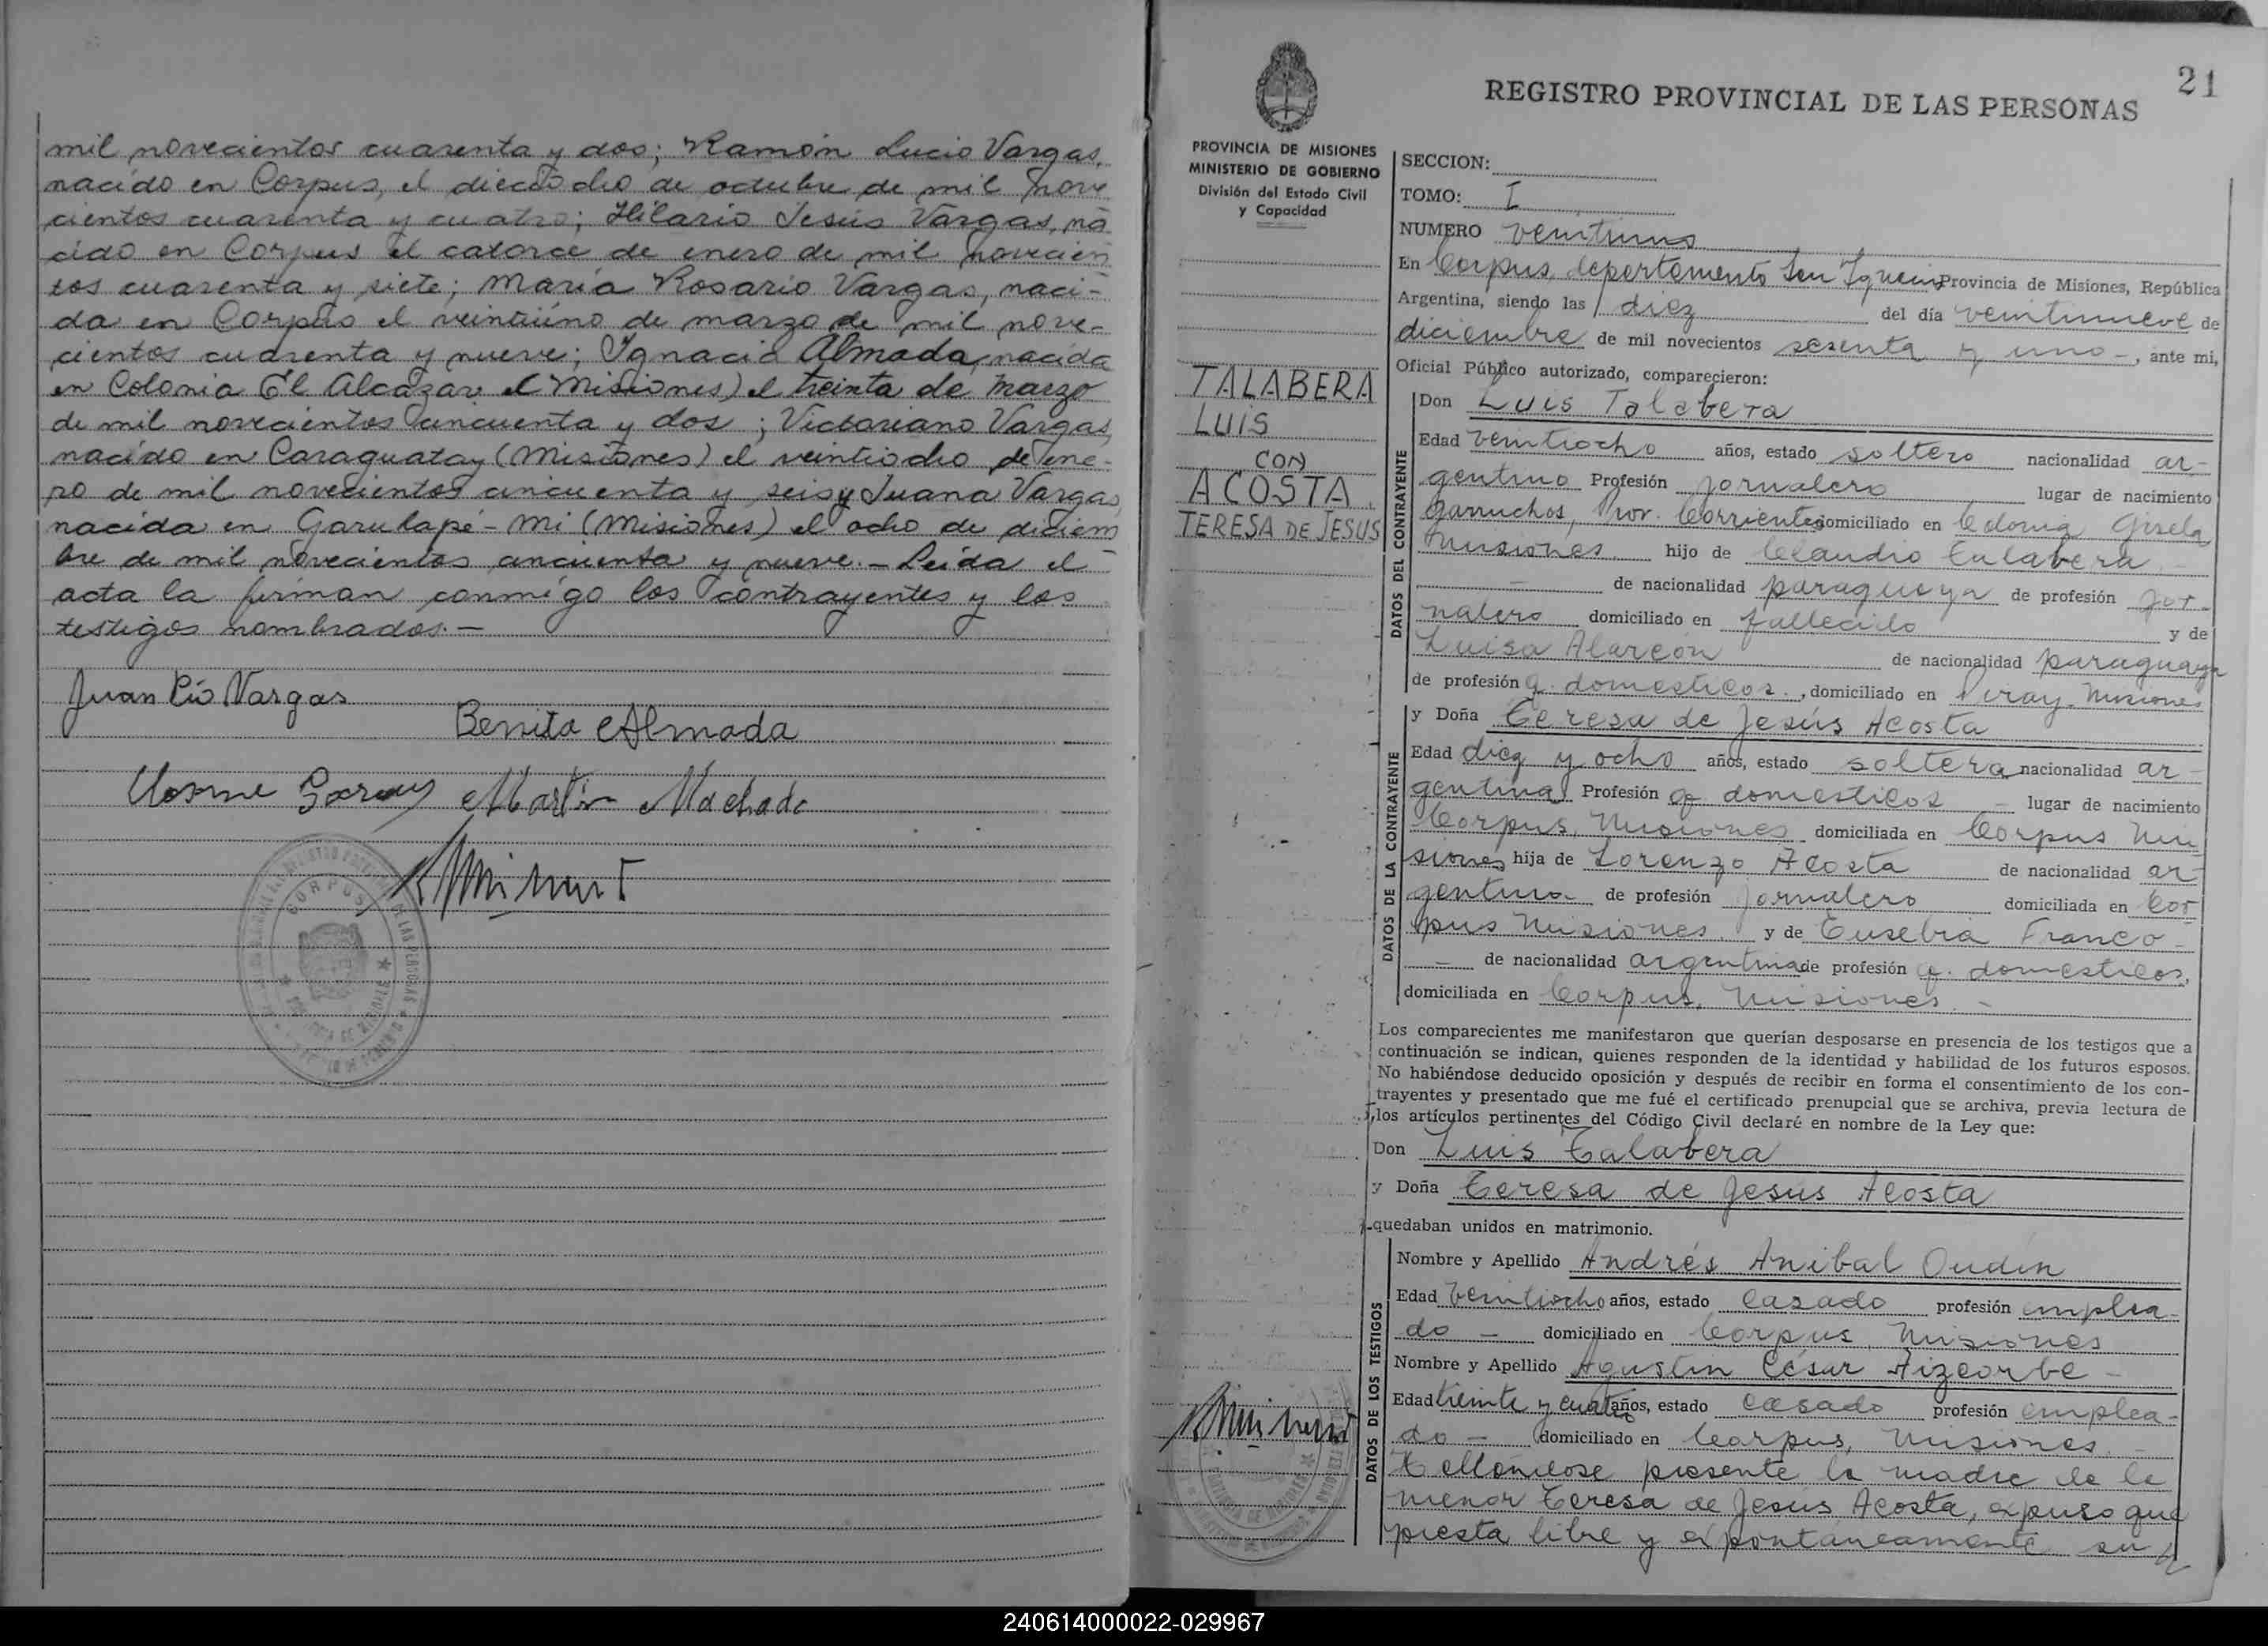 mil novecientos cuarenta y dos; Ramón Lucio Vargas,
nacido en Corpus, el dieciocho de octubre de mil nove
cientos cuarenta y cuatro; Hilario Jesús Vargas, na
cido en Corpus el catorce de enero de mil novecien
tos cuarenta y siete; María Rosario Vargas, naci-
da en Corpus el veintiúno de marzo de mil nove-
cientos cuarenta y nueve; Ignacia Almada, nacida
en Colonia El Alcazar (Misiones) el treinta de marzo
de mil novecientos cincuenta y dos; Victoriano Vargas,
nacido en Caraguatay (Misiones) el veintiocho de ene-
ro de mil novecientos cincuenta y seis y Juana Vargas
nacida en Garuhapé-Mi (Misiones) el ocho de diciem
bre de mil novecientos cincuenta y nueve.- Leída el
acta la firman conmigo los contrayentes y los
testigos nombrados.-
Juan Pío Vargas
Benita Almada
Martín Machado
CORPUS
21
REGISTRO PROVINCIAL DE LAS PERSONAS
PROVINCIA DE MISIONES
MINISTERIO DE GOBIERNO
División del Estado Civil
y Capacidad
TALABERA
LUIS
CON
ACOSTA
TERESA DE JESUS
SECCION:
TOMO: I
NUMERO veintiuno
En Corpus, departamento San Ignacio Provincia de Misiones, República
Argentina, siendo las diez del día veintinueve de
diciembre de mil novecientos sesenta y uno-, ante mi,
Oficial Público autorizado, comparecieron:
DATOS DEL CONTRAYENTE
Don Luis Talabera
Edad veintiocho años, estado soltero nacionalidad ar-
gentino Profesión jornalero lugar de nacimiento
Garruchos, Prov. Corrientes domiciliado en Colonia Gisela
Misiones hijo de Claudio Talabera -
- de nacionalidad paraguaya de profesión jor-
nalero domiciliado en fallecido y de
Luisa Alarcón de nacionalidad paraguaya
de profesión q. domesticos., domiciliado en Piray-Misiones
DATOS DE LA CONTRAYENTE
y Doña Teresa de Jesús Acosta
Edad diez y ocho años, estado soltera nacionalidad ar-
gentina Profesión q domesticos - lugar de nacimiento
Corpus, Misiones domiciliada en Corpus Mi
siones hija de Lorenzo Acosta de nacionalidad ar-
gentina de profesión jornalero domiciliada en Cor
pus Misiones, y de Eusebia Franco -
- de nacionalidad argentina de profesión q. domesticos,
domiciliada en Corpus, Misiones. -
Los comparecientes me manifestaron que querían desposarse en presencia de los testigos que a
continuación se indican, quienes responden de la identidad y habilidad de los futuros esposos.
No habiéndose deducido oposición y después de recibir en forma el consentimiento de los con-
trayentes y presentado que me fué el certificado prenupcial que se archiva, previa lectura de
los artículos pertinentes del Código Civil declaré en nombre de la Ley que:
Don Luis Talabera
y Doña Teresa de Jesús Acosta
quedaban unidos en matrimonio.
DATOS DE LOS TESTIGOS
Nombre y Apellido Andrés Anibal Oudin
Edad veintiocho años, estado casado profesión emplea-
do - domiciliado en Corpus, Misiones
Nombre y Apellido Agustin César Aizcorbe -
Edad treinta y cuatro años, estado casado profesión emplea-
do - domiciliado en Corpus, Misiones. -
Hallándose presente la madre de la
menor Teresa de Jesús Acosta, expuso que
presta libre y expontáneamente su
240614000022-029967